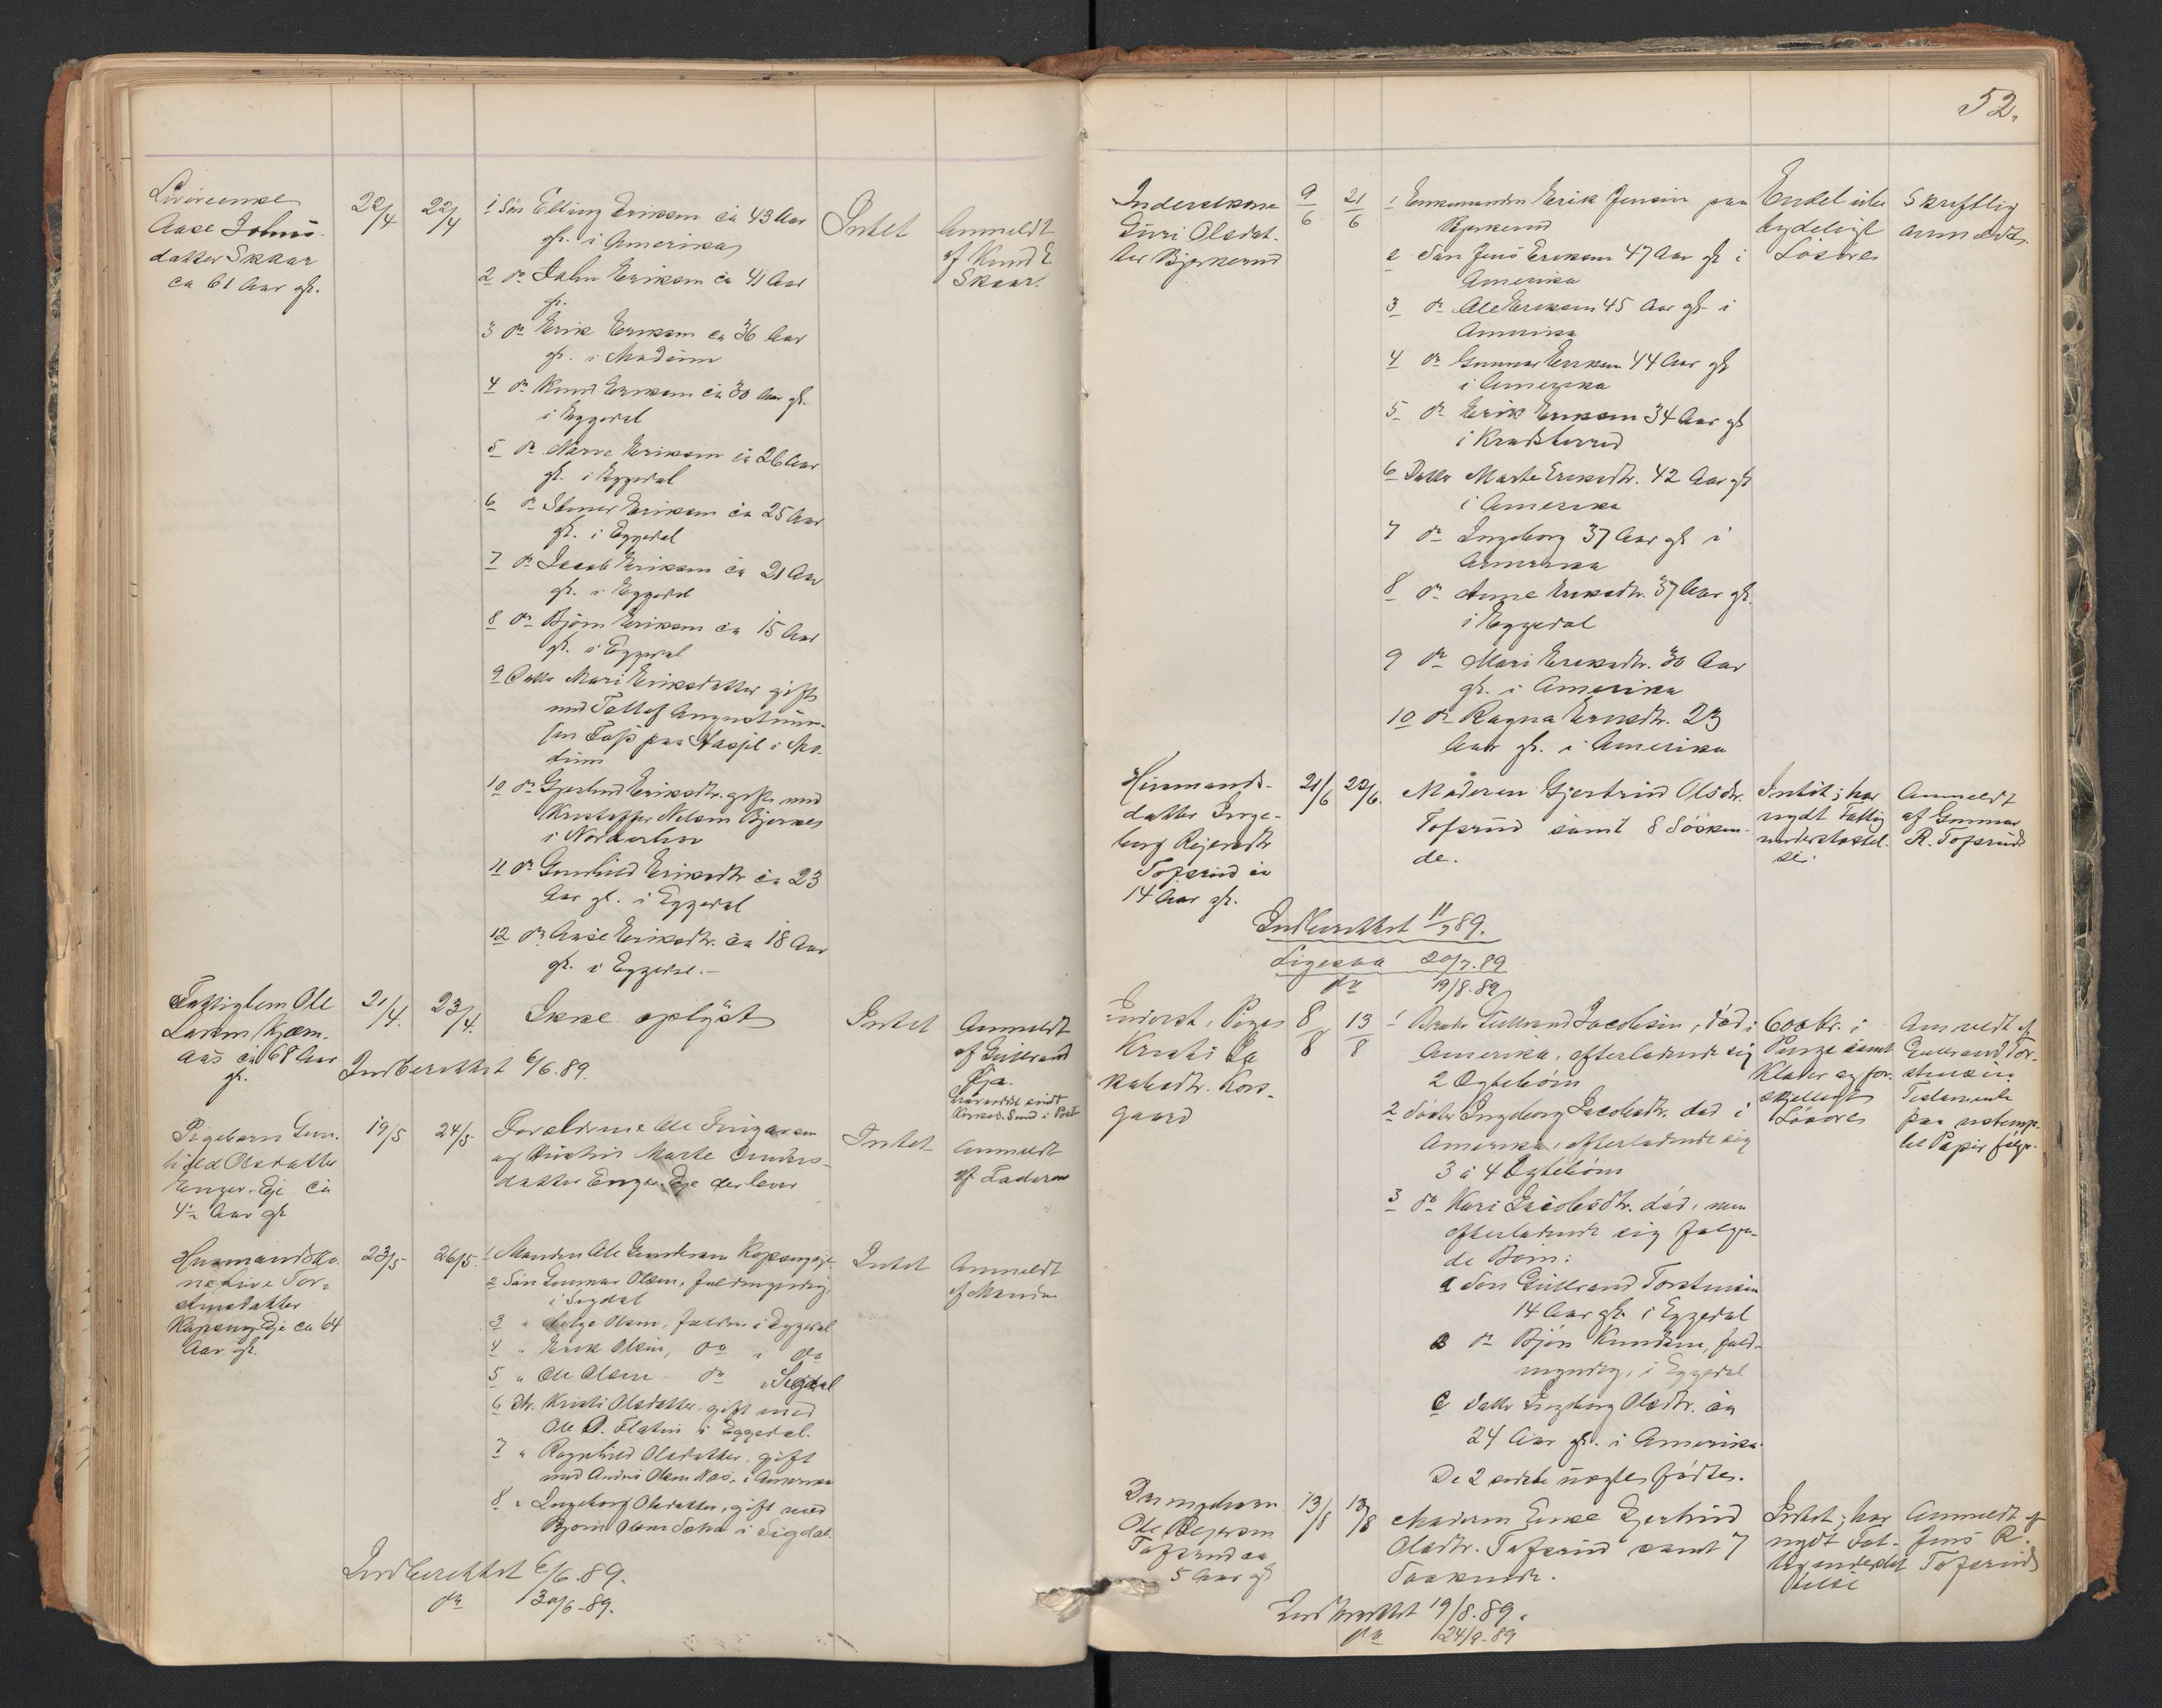 Aase Johns-
datter Skaar
ca 61 Aar gl.
22/4
22/4
1 Søn Elling Eriksen ca 43 Aar
gl. i Amerika
2 do John Eriksen ca 41 Aar
gl.
3 do Erik Eriksen ca 36 Aar
gl. i Modum
4 do Knud Eriksen ca 30 Aar gl.
i Eggedal
5 do Narve Eriksen ca 26 Aar
gl. i Eggedal
6 do Stener Eriksen ca 25 Aar
gl. i Eggedal
7 do Jacob Eriksen ca 21 Aar
gl. i Eggedal
8 do Bjørn Eriksen ca 15 Aar
gl. i Eggedal
9 Datter Mari Eriksdatter gift
med Tollef
paa i Mo-
dum
10 do Gjertrud Eriksdtr. gift med
Kristoffer Nelsen Bjerkes
i Norderhov
11 do Gunhild Eriksdtr ca 23
Aar gl. i Eggedal
12 do Aase Eriksdtr. ca 18 Aar
gl. i Eggedal.-
Intet
Anmeldt
af Knud E
Skaar.
Fattiglem Ole
Larsen
ca 68 Aar
gl.
21/4.
23/4.
Ikke oplyst
Intet
Anmeldt
af Gulbrand
Indberettet 6/6.89.
Pigebarn Gun-
hild Olsdatter
Enger-Eje ca
4½ Aar gl
19/5
24/5
Forældrene Ole
og Hustru Marte
datter Enger-Eje der lever
Intet
Anmeldt
af Faderen
Husmandsko-
ne Live Tor-
stensdatter
Kopseng-Eje ca 64
Aar gl.
23/5
26/5
1 Manden Ole Gundersen Kopsengeje
2 Søn Gunnar Olsen, fuldmyndig,
i Sigdal
3 " Helge Olsen, fuldm. i Eggedal
4 " Erik Olsen, do i do
5 " Ole Olsen do i Sigdal
6 Dtr. Kristi Olsdatter gift med
Ole O. Flatin i Eggedal.
7 " Ragnhild Olsdatter, gift
med Anders Olsen Næs, i Amerika
8 " Ingeborg Olsdatter, gift med
Bjørn Olsen i Sigdal.
Intet
Anmeldt
af Manden
Indberettet 6/6.89.
do 30/6-89.
52.
Inderstkone
Guri Olsdat-
ter Bjørkerud
9/6
21/6
1 Enkemanden Erik Jensen paa
Bjørkerud
2 Søn Jens Eriksen 47 Aar gl i
Amerika
3 do Ole Eriksen 45 Aar gl i
Amerika
4 do Gunnar Eriksen 44 Aar gl
i Amerika
5 do Erik Eriksen 34 Aar gl
i Krødsherred
6 Datter Marte Eriksdtr. 42 Aar gl
i Amerika
7 do Ingeborg 37 Aar gl i
Amerika
8 do Anne Eriksdtr. 37 Aar gl.
i Eggedal
9 do Mari Eriksdtr. 30 Aar
gl. i Amerika
10 do Ragna Eriksdtr. 23
Aar gl. i Amerika
Endel ube
tydeligt
Løsøre
Skriftlig
anmeldt.
Husmands-
datter Inge-
borg Reiersdtr
Tofsrud ca
14 Aar gl.
21/6
22/6.
Moderen Gjertrud Olsdtr.
Tofsrud samt 8 Søsken-
de.
Intet; har
nydt Fattig
understøttel-
se
Anmeldt
af Gunnar
R. Tofsrud
Indberettet 11/7 89.
Ligesaa 20/7.89
do 19/8.89
Inderst, Pige
Kristi Ja
kobsdtr. Kors-
gaard
8/8
13/8
1 Broder Gulbrand Jacobsen, død i
Amerika, efterladende sig
2 Ægtebørn
2 Søster Ingeborg Jacobsdtr. død i
Amerika, efterladende sig
3 à 4 Ægtebørn
3 do Kari Jacobsdtr. død, men
efterladende sig følgen-
de Børn:
a Søn Gulbrand Torstensen
14 Aar gl. i Eggedal
B do Bjørn Knudsen, fuld-
myndig, i Eggedal
C Datter Ingeborg Olsdtr. ca
24 Aar gl. i Amerika.
De 2 sidste uægte fødte.
600 Kr. i
Penge samt
Klæder og for-
skjelligt
Løsøre
Anmeldt af
Gulbrand Tor-
stensen.
Testamente
paa ustemp-
let Papir følger.
Drengebarn
Ole Reiersen
Tofsrud ca
5 Aar gl
13/8
13/8
Moderen Enke Gjertrud
Olsdtr. Tofsrud samt 7
Søskende.
Intet; har
nydt Fat-
tigunderstøt
telse
Anmeldt af
Jens R.
Tofsrud
Indberettet 19/8.89.
do 24/9-89